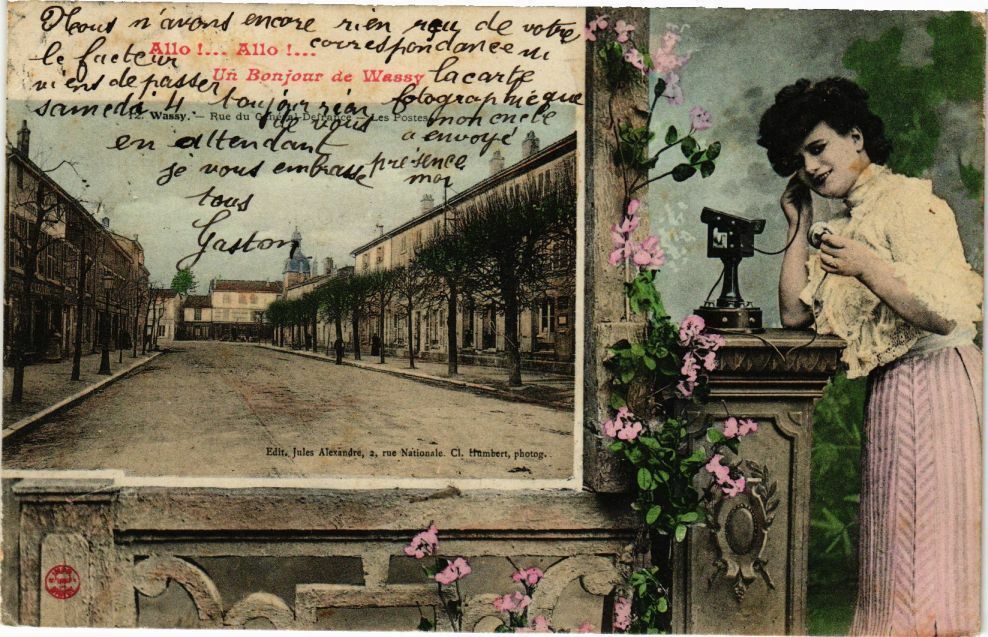 Nous n'avons encore rien reçu de votre
correspondance ni
le facteur
viens de passer
Allo !... Allo !...
Un Bonjour de Wassy
la carte
samedi 4 toujour rien
fotographique
12. Wassy. — Rue du Général Defrance — Les Postes
de vous
mon
a envoyé
en attendant
je vous embrasse
présence
moi
tous
Gaston
Edit. Jules Alexandre, 2, rue Nationale. Cl. Humbert, photog.